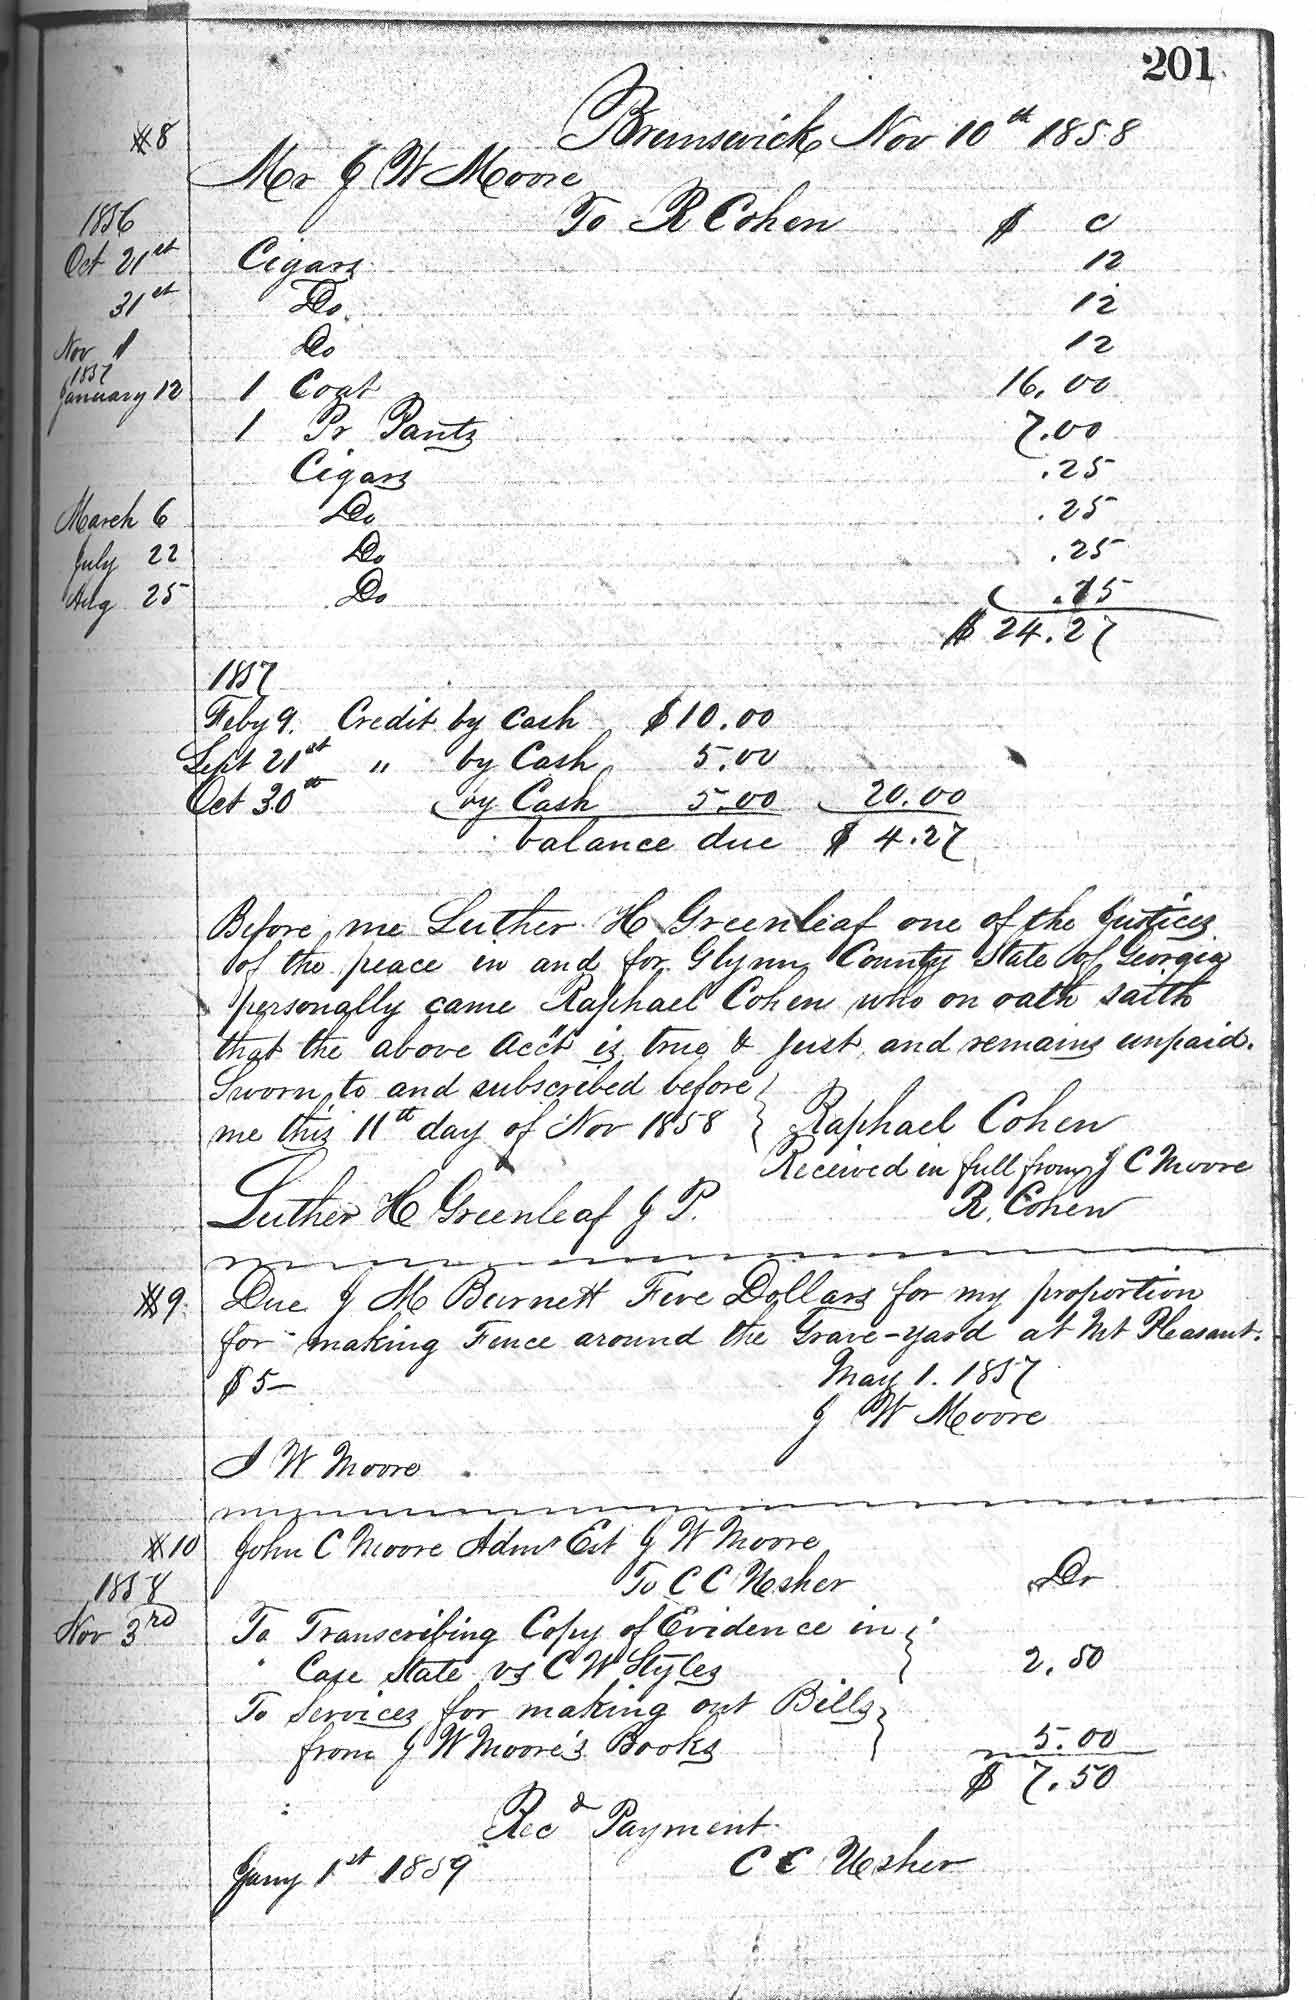 201
#8 Brunswick Nov 10th 1858
Mr J W Moore
1856 To R Cohen $ c
Oct 21st Cigars 12
31st Do 12
Nov 1 Do 12
1857
January 12 1 Coat 16.00
1 Pr Pants 7.00
Cigars .25
March 6 Do .25
July 22 Do .25
Aug 25 Do .15
$ 24.27
1857
Feby 9. Credit by Cash $10.00
Sept 21st " by Cash 5.00
Oct 30th by Cash 5.00 20.00
balance due $ 4.27
Before me Luther H Greenleaf one of the Justices
of the peace in and for Glynn County State of Georgia
personally came Raphael Cohen who on oath saith
that the above acct is true & just and remains unpaid.
Sworn to and subscribed before
me this 11th day of Nov 1858 } Raphael Cohen
Received in full from J C Moore
Luther H Greenleaf J P. R. Cohen
#9 Due J M Burnett Five Dollars for my proportion
for making Fence around the Grave-yard at Mt Pleasant.
$5— May 1. 1857
J W Moore
J W Moore
#10 John C Moore Admr Est J W Moore
1858 To C C Usher Dr
Nov 3rd To Transcribing Copy of Evidence in }
Case State vs C W Styles 2.50
To Services for making out Bills }
from J W Moore's Books 5.00
$ 7.50
Recd Payment
Jany 1st 1859 C C Usher